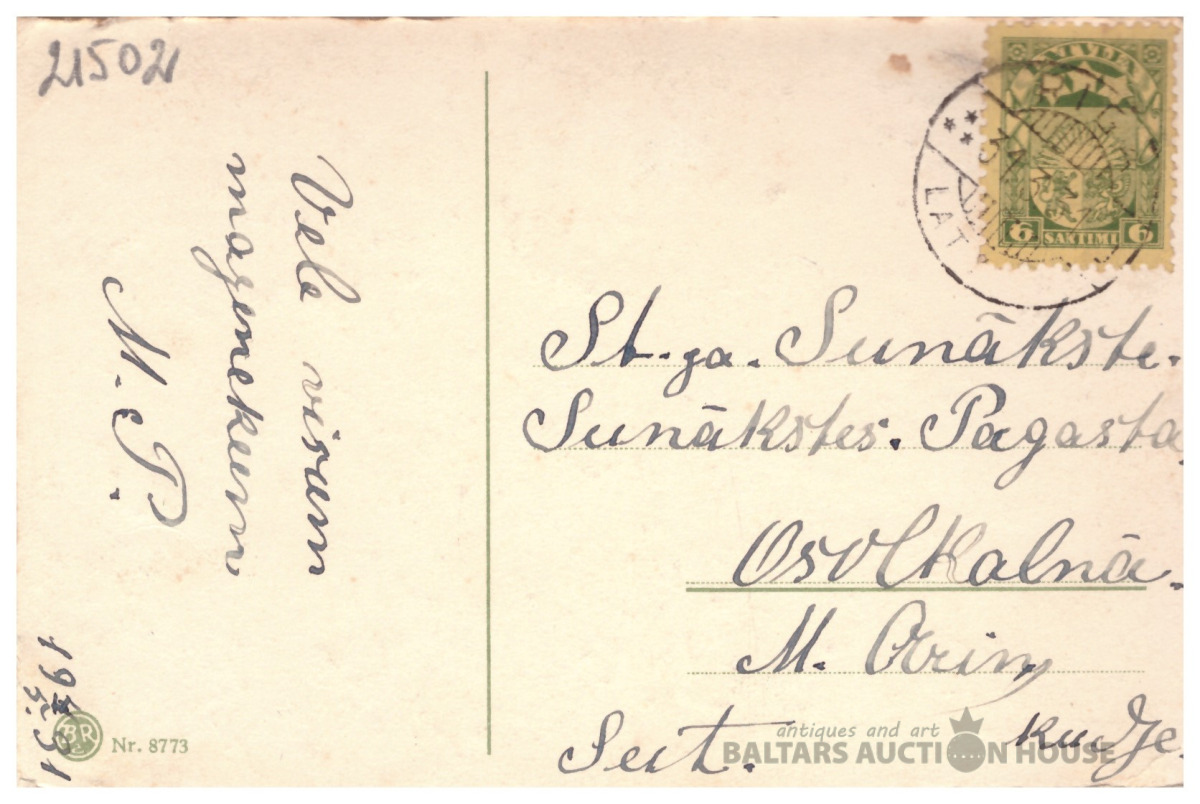 21502
Vela visam
mazemekem
M. P.
19 5/II 31
BR
Nr. 8773
LATVIJA
6 SANTIMI 6
LAT
St-ja. Sunākste.
Sunākstes. Pagasta
Osolkalnā.
M.
Sut.
antiques and art
BALTARS AUCTION HOUSE